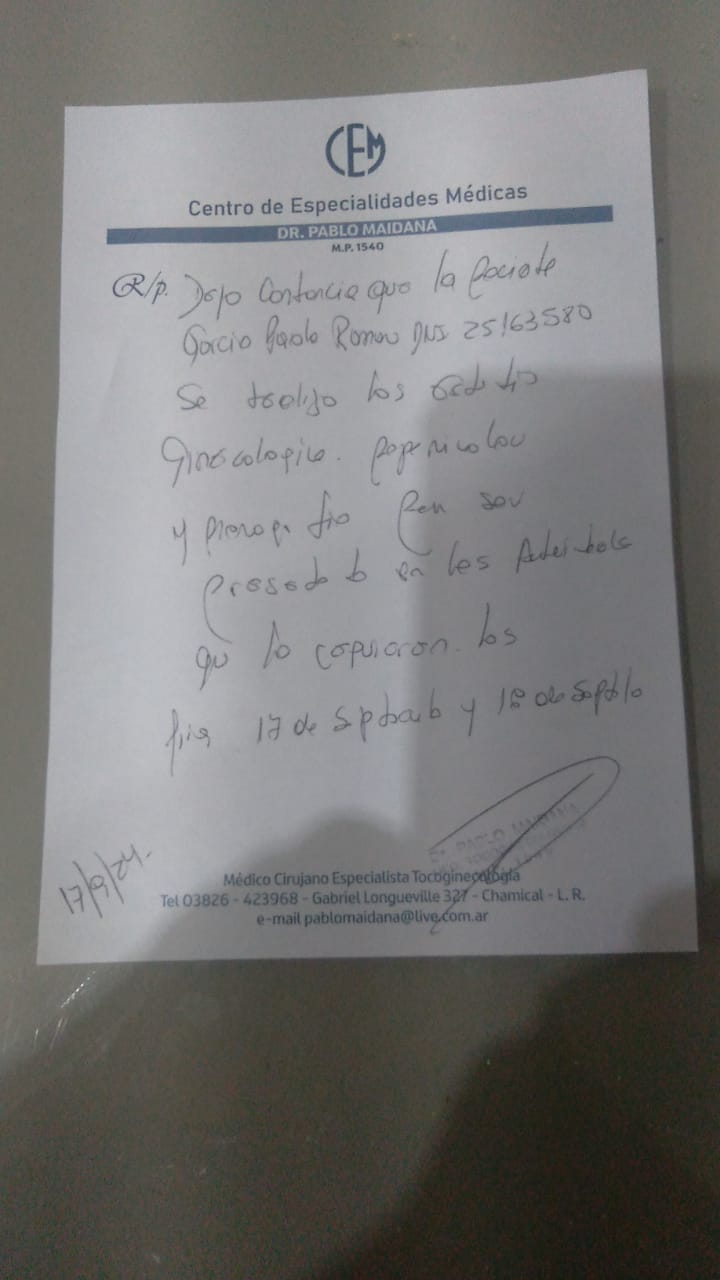 CEM
Centro de Especialidades Médicas
DR. PABLO MAIDANA
M.P. 1540
R/p. Dejo Constancia que la paciente
Garcia Paola Romina DNI 25163580
Se realizo los
Ginecologico. papanicolau
y para ser
presentado en las
que lo requieran. los
dias 17 de Septiembre y 18 de Septiembre
17/9/24.
Dr. PABLO MAIDANA
Médico Cirujano Especialista Tocoginecología
Tel 03826 - 423968 - Gabriel Longueville 327 - Chamical - L. R.
e-mail pablomaidana@live.com.ar